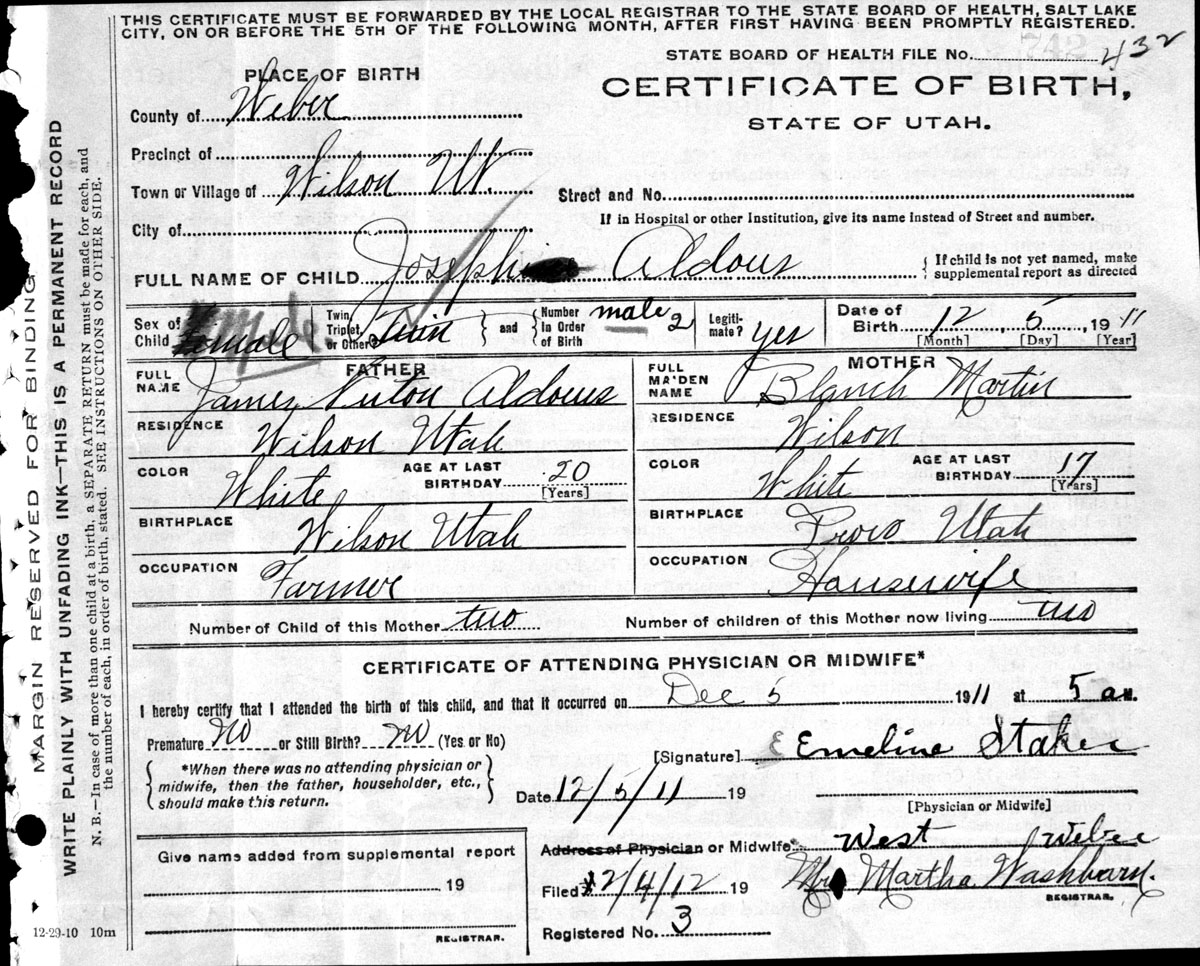 THIS CERTIFICATE MUST BE FORWARDED BY THE LOCAL REGISTRAR TO THE STATE BOARD OF HEALTH, SALT LAKE
CITY, ON OR BEFORE THE 5TH OF THE FOLLOWING MONTH, AFTER FIRST HAVING BEEN PROMPTLY REGISTERED.
STATE BOARD OF HEALTH FILE No. 432
PLACE OF BIRTH
CERTIFICATE OF BIRTH,
STATE OF UTAH.
County of Weber
Precinct of
Town or Village of Wilson Ut.
Street and No.
If in Hospital or other Institution, give its name instead of Street and number.
City of
FULL NAME OF CHILD Joseph Aldous
{ If child is not yet named, make
supplemental report as directed
Sex of
Child male
Twin,
Triplet,
or Other? Twin
{ and }
Number
in Order
of Birth male 2
Legiti-
mate? yes
Date of
Birth 12 5 1911
[Month] [Day] [Year]
FATHER
FULL
NAME James Aldous
RESIDENCE Wilson Utah
COLOR White
AGE AT LAST
BIRTHDAY 20
[Years]
BIRTHPLACE Wilson Utah
OCCUPATION Farmer
MOTHER
FULL
MAIDEN
NAME Blanch Martin
RESIDENCE Wilson
COLOR White
AGE AT LAST
BIRTHDAY 17
[Years]
BIRTHPLACE Provo Utah
OCCUPATION Housewife
Number of Child of this Mother two
Number of children of this Mother now living two
CERTIFICATE OF ATTENDING PHYSICIAN OR MIDWIFE*
I hereby certify that I attended the birth of this child, and that it occurred on Dec 5 1911 at 5 a M.
Premature no or Still Birth? no (Yes or No)
{ *When there was no attending physician or
midwife, then the father, householder, etc.,
should make this return. }
[Signature] Emeline Staker
Date 12/5/11 19
[Physician or Midwife]
Address of Physician or Midwife West Weber
Filed 2/4/12 19
Mrs Martha Washburn.
REGISTRAR.
Registered No. 3
Give name added from supplemental report
19
REGISTRAR.
MARGIN RESERVED FOR BINDING
WRITE PLAINLY WITH UNFADING INK—THIS IS A PERMANENT RECORD
N. B.—In case of more than one child at a birth, a SEPARATE RETURN must be made for each, and
the number of each, in order of birth, stated. SEE INSTRUCTIONS ON OTHER SIDE.
12-29-10 10m